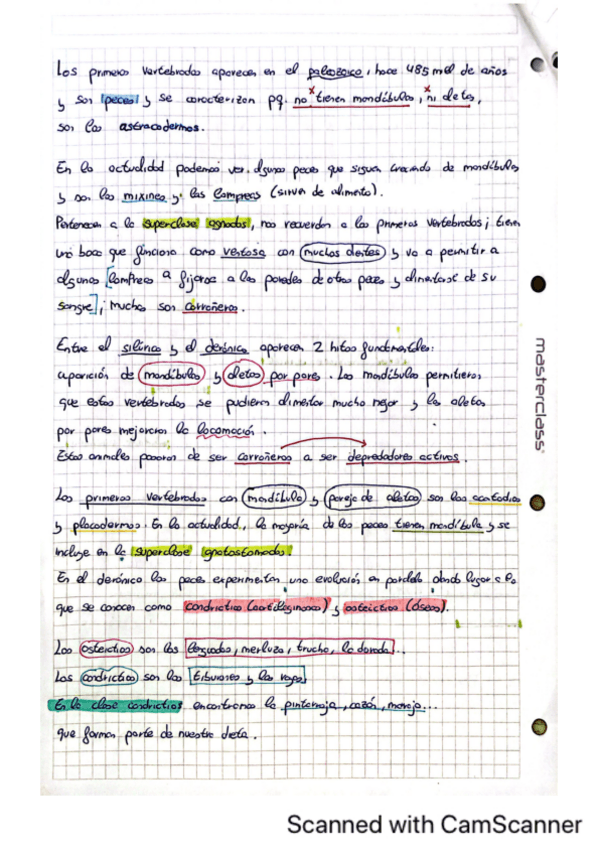 Los primeros vertebrados aparecen en el paleozoico, hace 485 mill de años
y son peces y se caracterizan pq. no tienen mandíbulas, ni aletas,
son los ostracodermos.
En la actualidad podemos ver algunos peces que siguen careciendo de mandíbulas
y son los mixines y las lampreas (sirven de alimento).
Pertenecen a la superclase agnados, nos recuerdan a los primeros vertebrados; tienen
una boca que funciona como ventosa con muchos dientes y va a permitir a
algunos lamprea a fijarse a las paredes de otros peces y alimentarse de su
sangre; muchos son carroñeros.
Entre el silúrico y el devónico aparecen 2 hitos fundamentales:
aparición de mandíbulas y aletas por pares. Las mandíbulas permitieron
que estos vertebrados se pudieran alimentar mucho mejor y las aletas
por pares mejoraron la locomoción.
Estos animales pasaron de ser carroñeros a ser depredadores activos.
Los primeros vertebrados con mandíbula y pareja de aletas son los acatodios
y placodermos. En la actualidad, la mayoría de los peces tienen mandíbula y se
incluye en la superclase gnatostomados.
En el devónico los peces experimentan una evolución en paralelo dando lugar a lo
que se conocen como condrictios (cartilaginosos) y osteictios (óseos).
Los osteictios son los lenguados, merluza, trucha, la dorada...
Los condrictios son los tiburones y las rayas
En la clase condrictios encontramos la pintarroja, cazón, marrajo...
que forman parte de nuestra dieta.
masterclass
Scanned with CamScanner